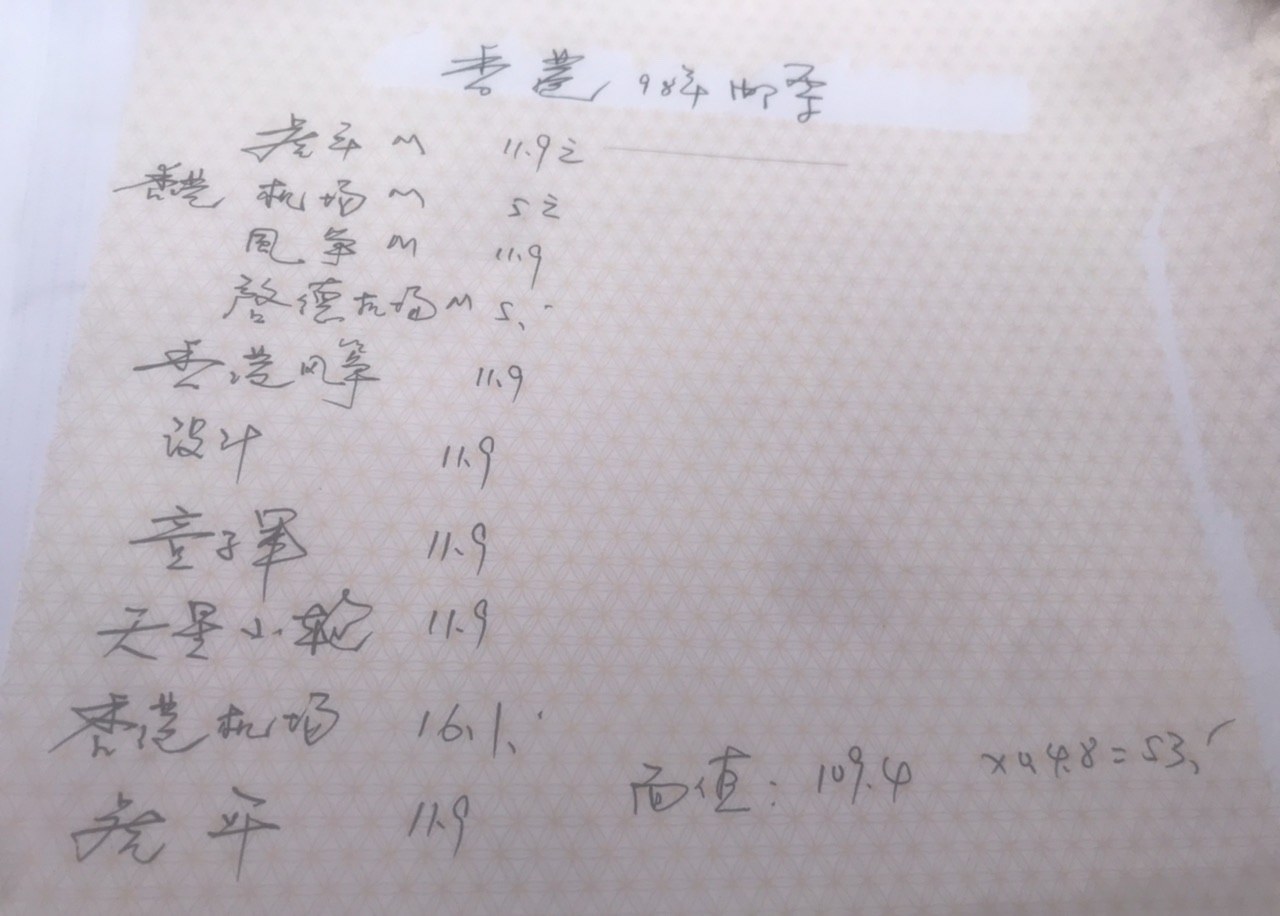 香港 98年邮季
虎年 M 11.9元
香港 机场 M 5元
風筝 M 11.9
啓德机场 M 5.-
香港风筝 11.9
设计 11.9
童子軍 11.9
天星小轮 11.9
香港机场 16.1.
虎年 11.9
面值: 109.4 x0.48=53.